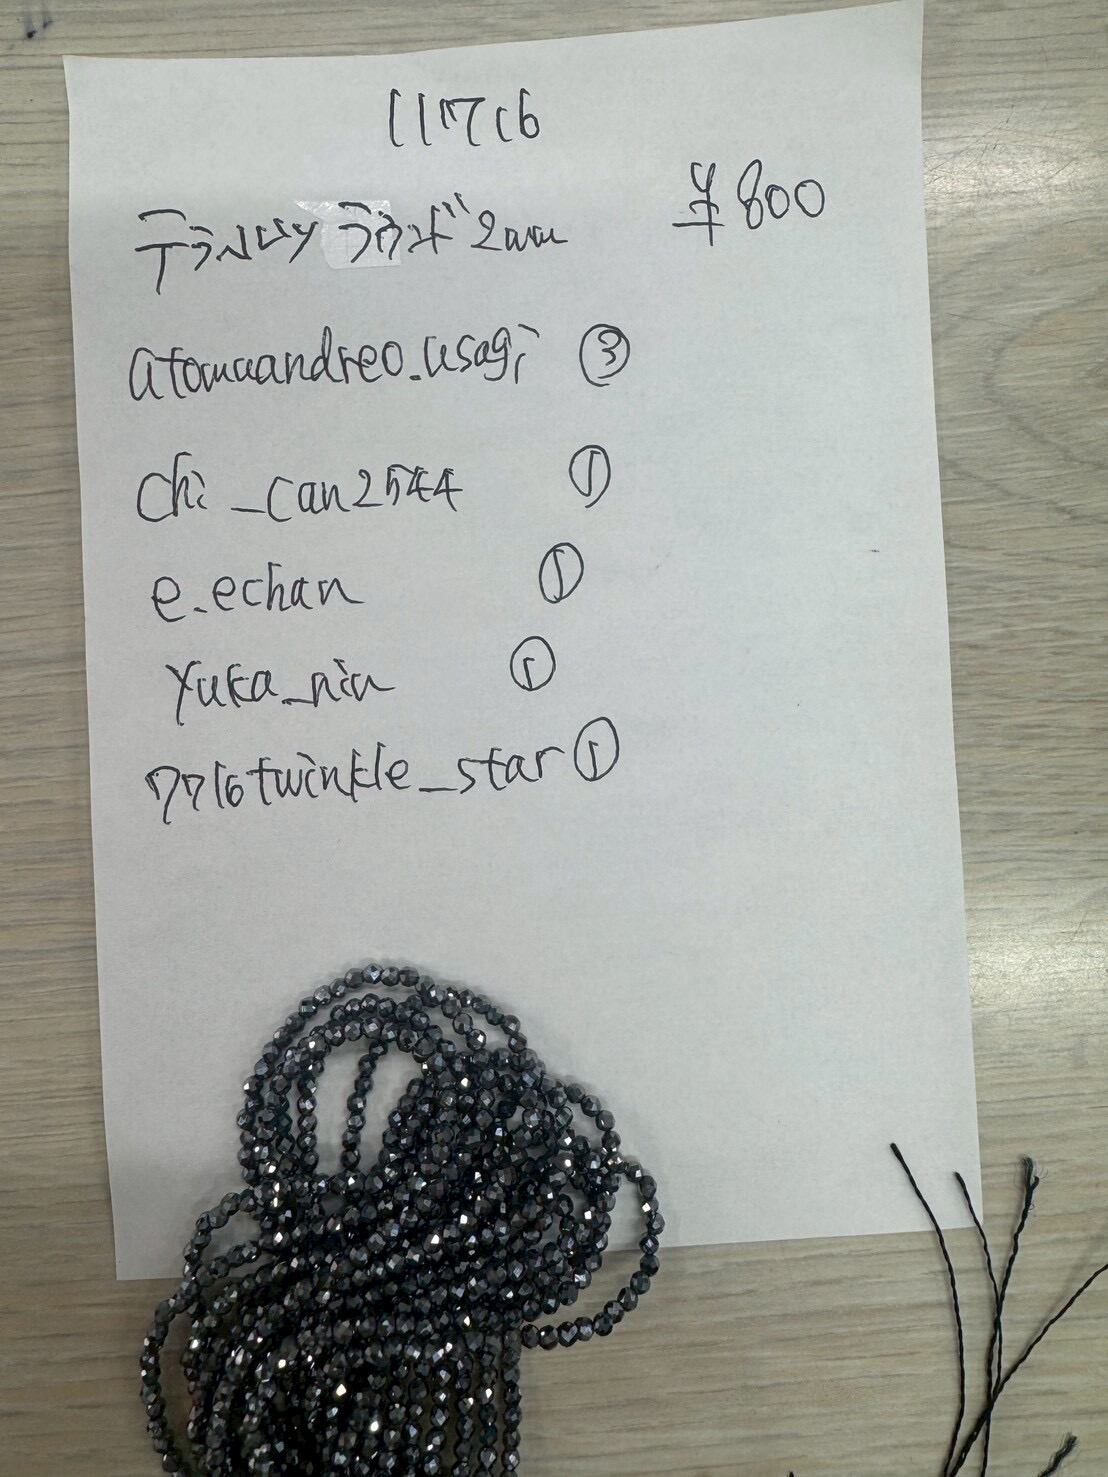 11716
テラヘルツ ラウンド 2mm ¥800
atomuandreo.usagi ③
chi_can2544 ①
e.echan ①
yuka_nin ①
7716twinkle_star ①